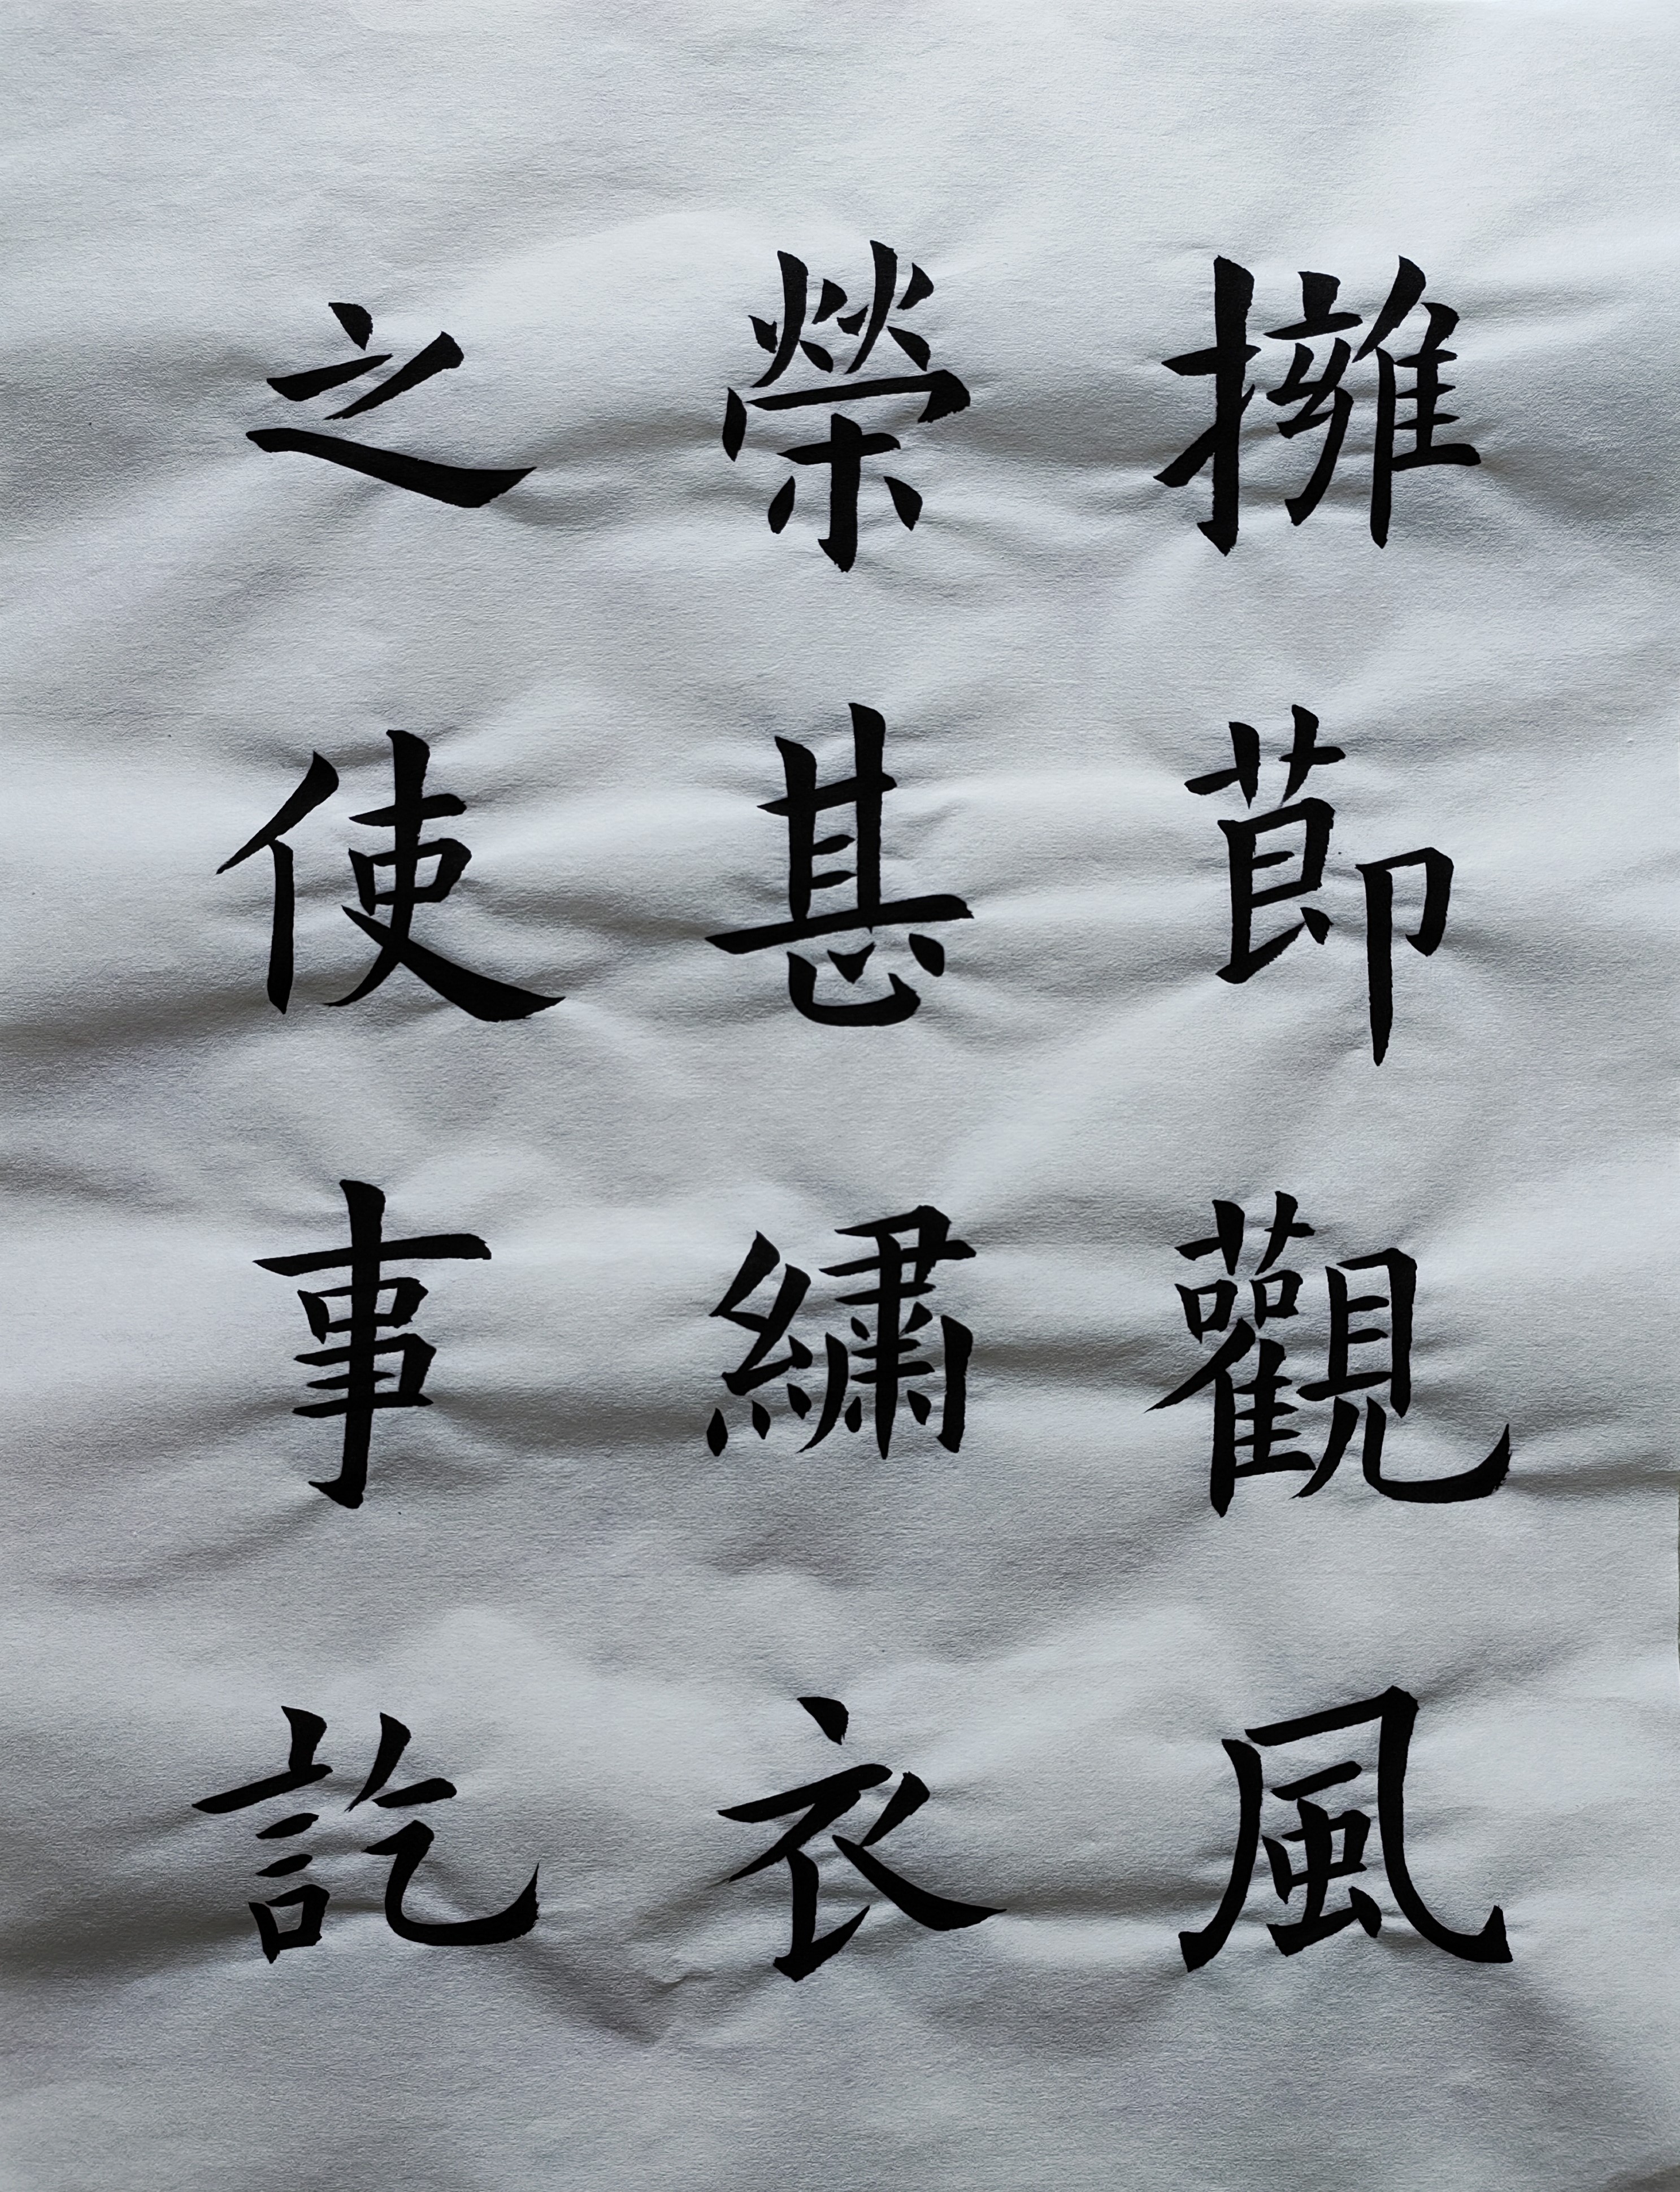 擁節觀風
榮甚繡衣
之使事訖